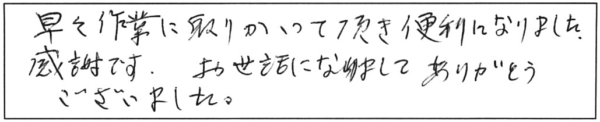 早々作業に取りかかって頂き便利になりました.
感謝です. お世話になりまして ありがとう
ございました。